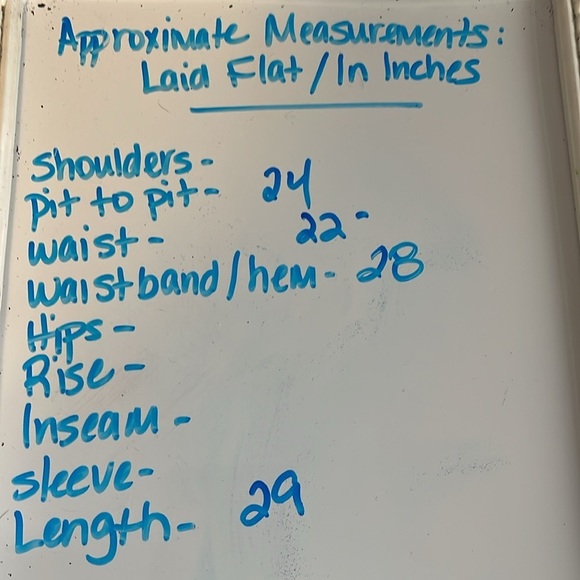 Approximate Measurements:
Laid Flat / In Inches
Shoulders-
pit to pit- 24
waist- 22-
waistband/hem- 28
Hips-
Rise-
Inseam-
sleeve-
Length- 29